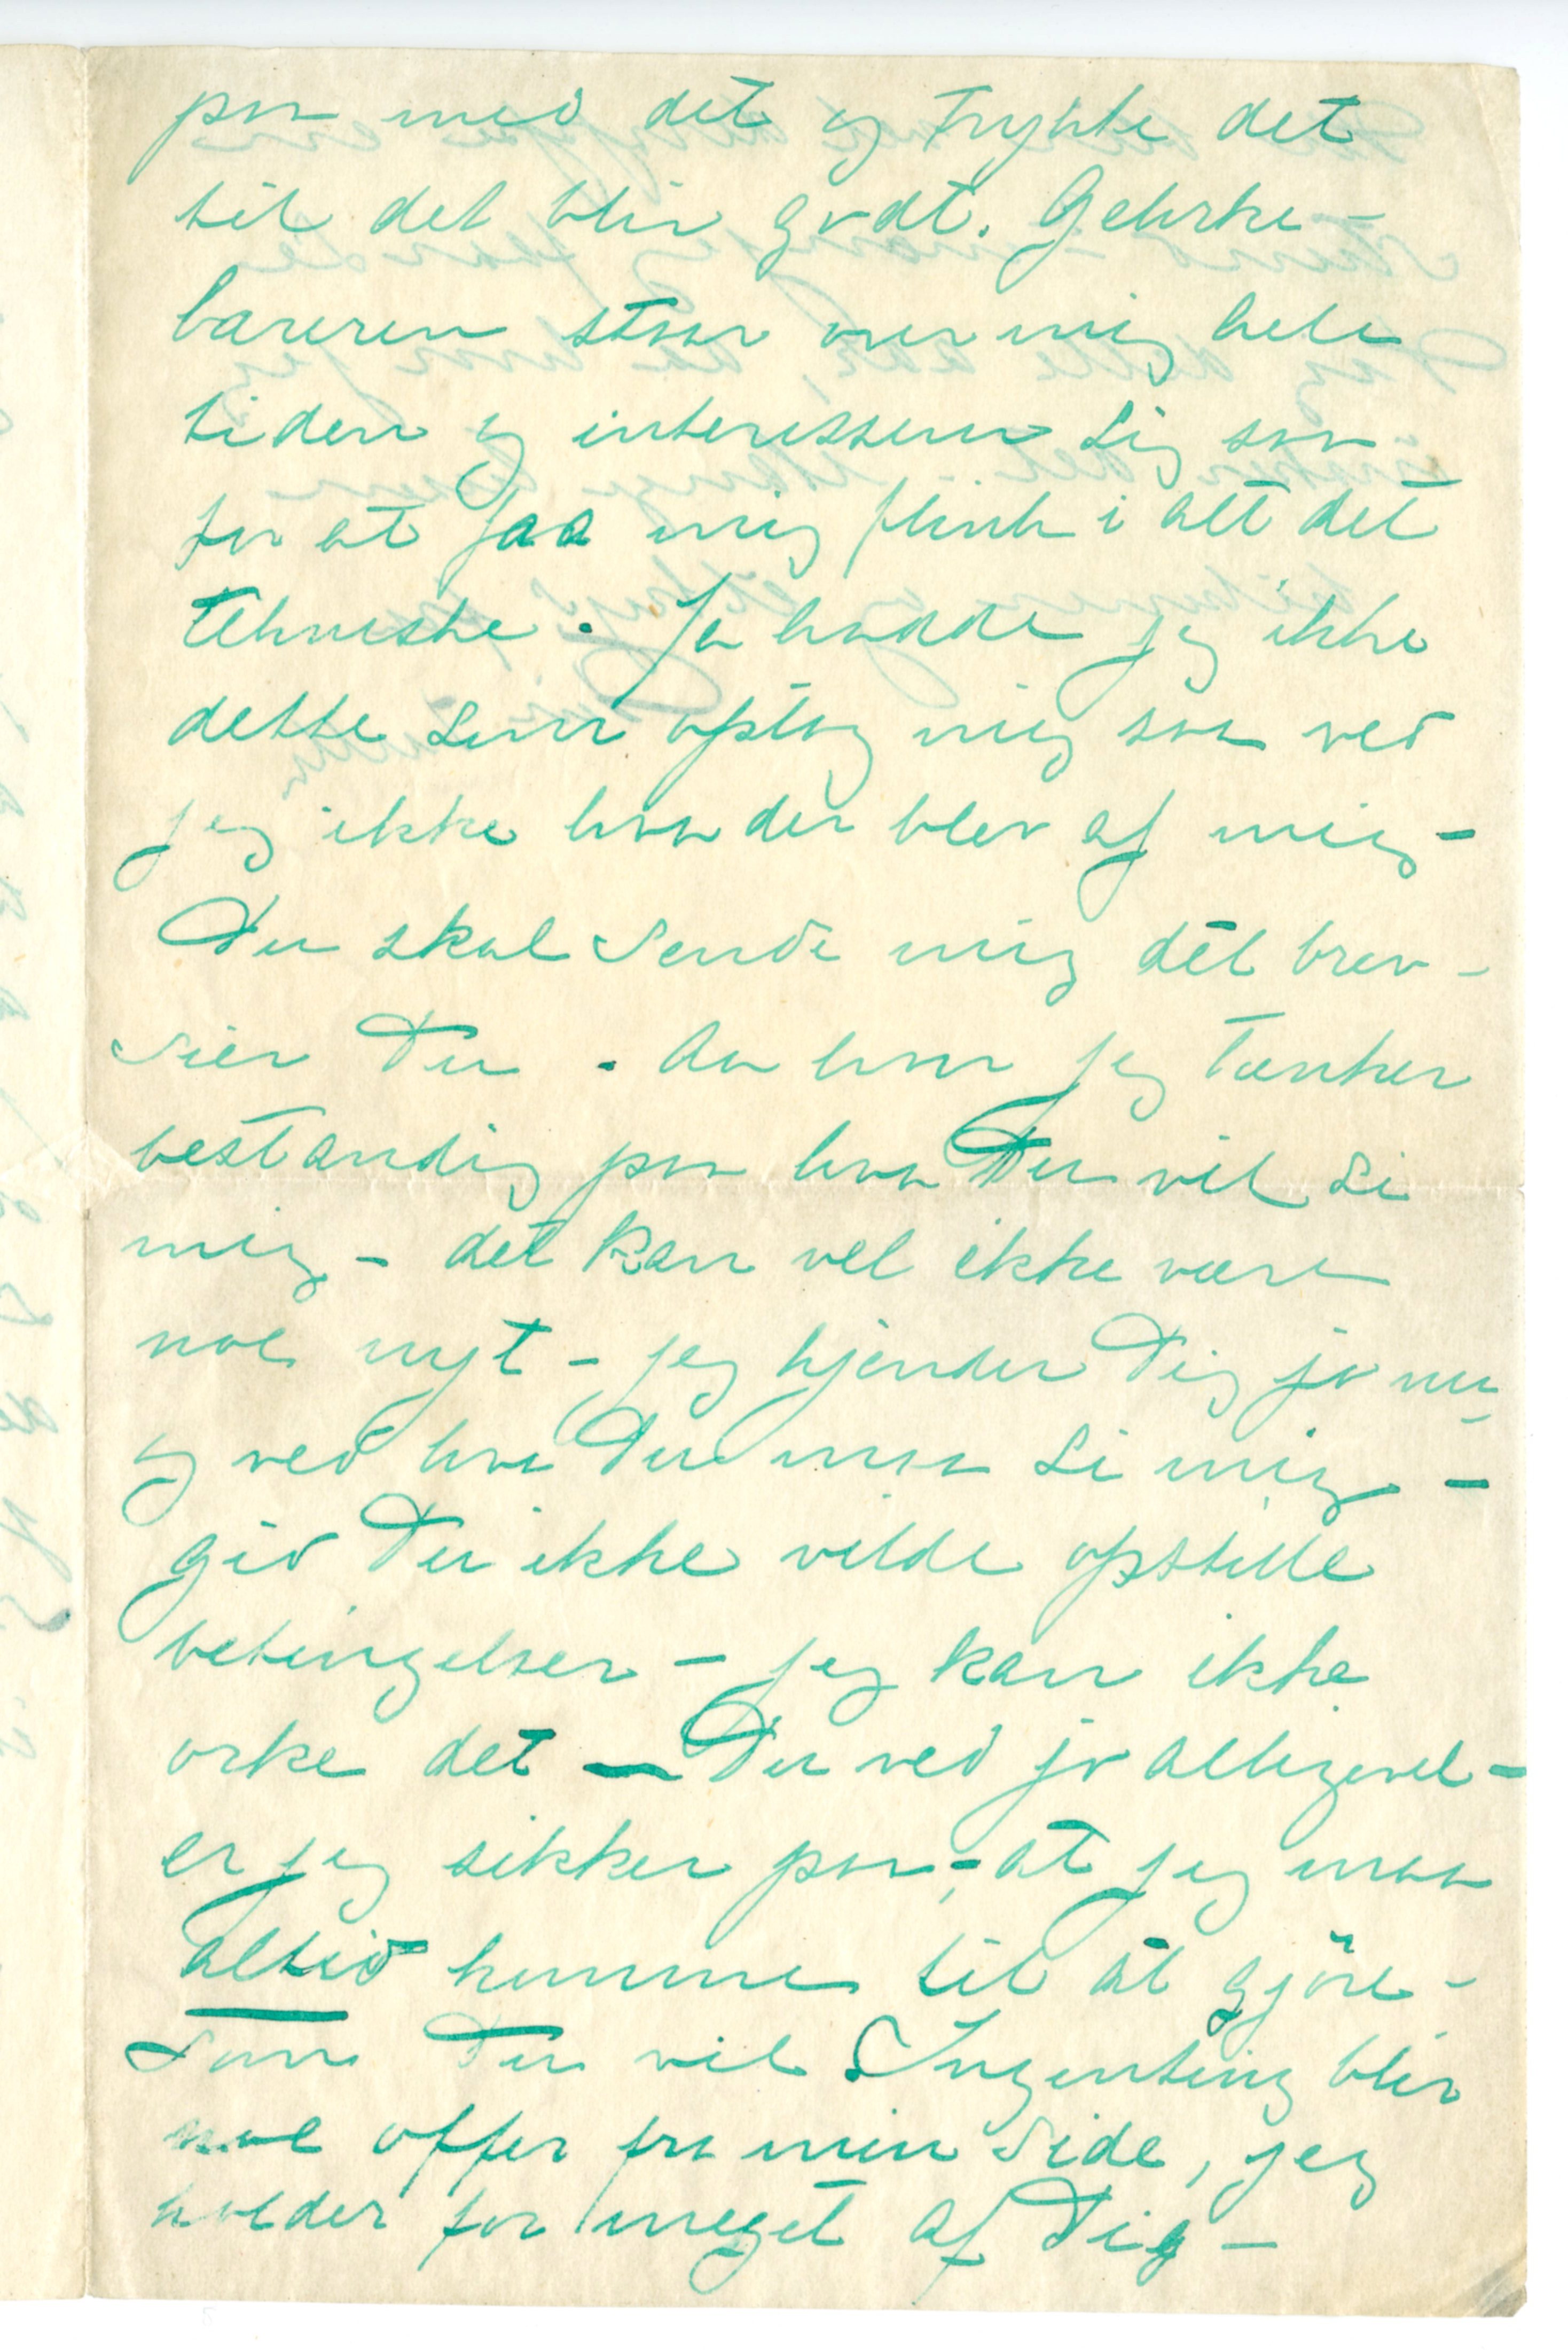 paa med det og trykke det
til det blir godt. Gehrke-
bareren staar over mig hele
tiden og interesserer sig saa
for at faa mig flink i alt det
tekniske. Ja hadde jeg ikke
dette som optog mig saa ved
jeg ikke hva der blev af mig –
Du skal sende mig det brev –
sier Du . Aa hvor jeg tænker
bestandig paa hva Du vil si
mig – det kan vel ikke være
noe nyt – jeg kjender Dig jo nu –
og ved hva Du maa si mig –
gid Du ikke vilde opstille
betingelser – jeg kan ikke
orke det – Du ved jo alligevel –
er jeg sikker paa – at jeg maa
altid komme til at gjöre –
som Du vil Ingenting blir
noe offer fra min side, jeg
holder for meget af Dig –